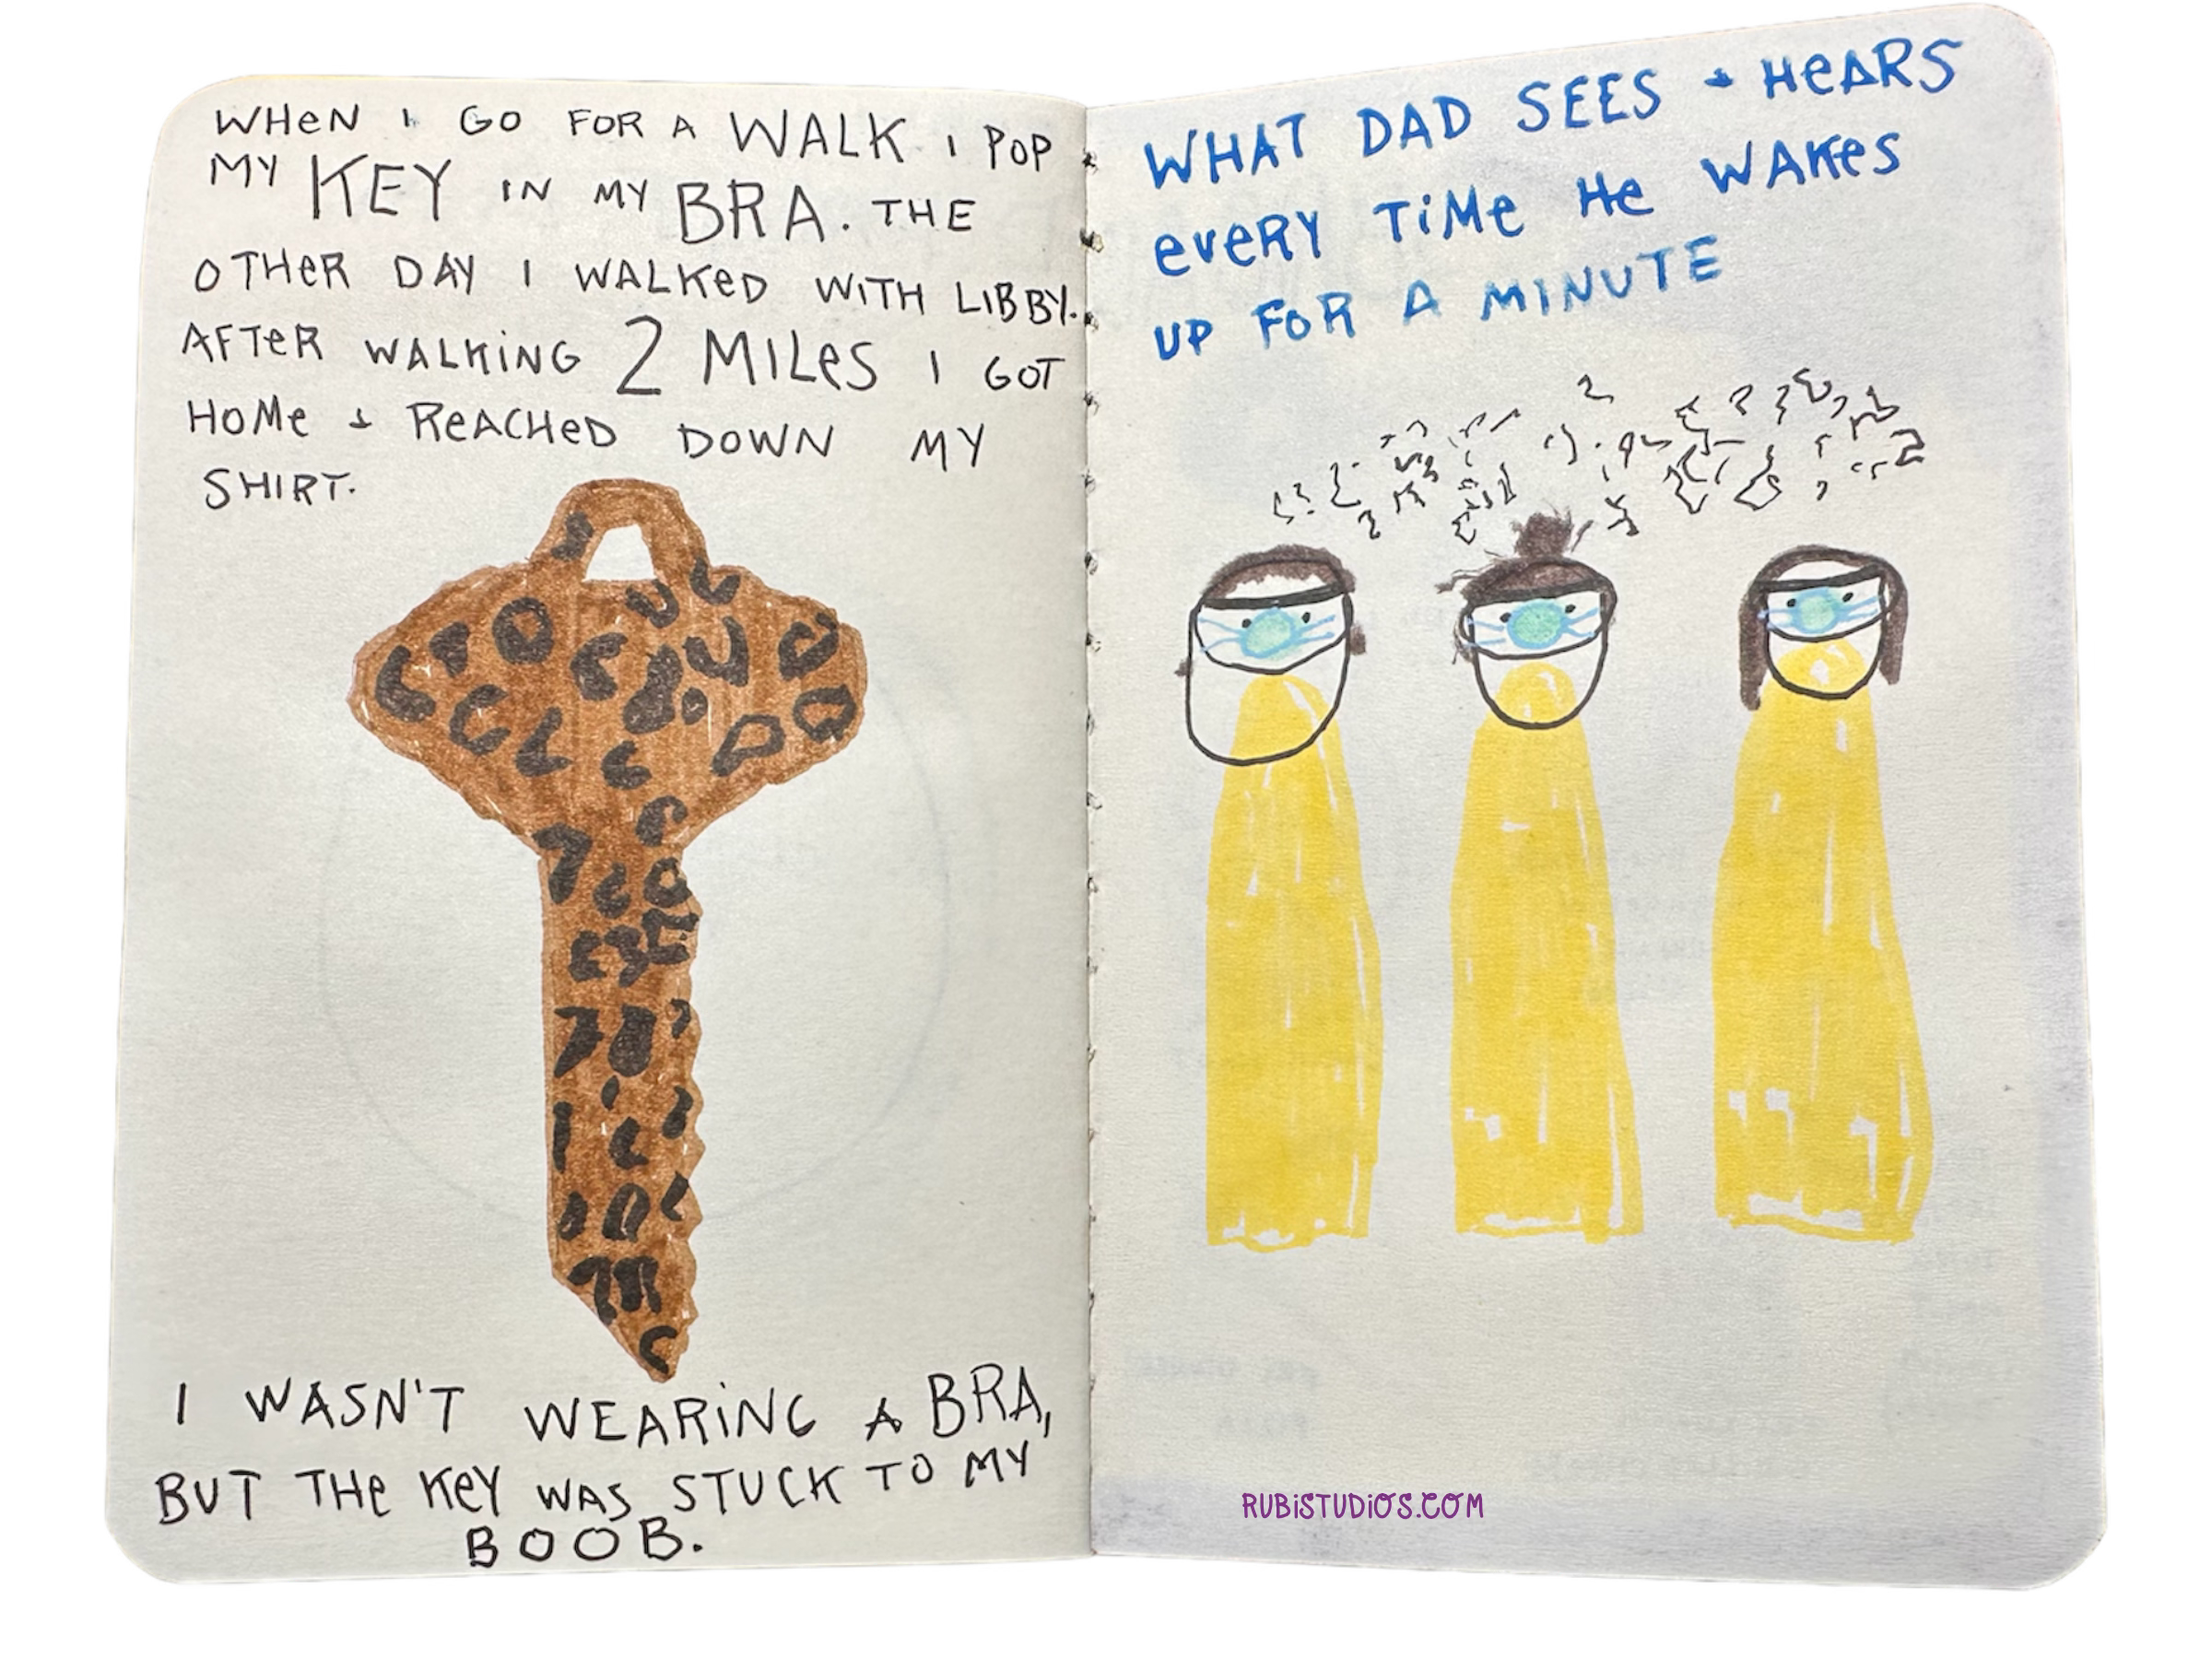 WHEN I GO FOR A WALK I POP
MY KEY IN MY BRA. THE
OTHER DAY I WALKED WITH LIBBY.
AFTER WALKING 2 MILES I GOT
HOME + REACHED DOWN MY
SHIRT.
I WASN'T WEARING A BRA,
BUT THE KEY WAS STUCK TO MY
BOOB.
WHAT DAD SEES + HEARS
EVERY TIME HE WAKES
UP FOR A MINUTE
RUBISTUDIOS.COM